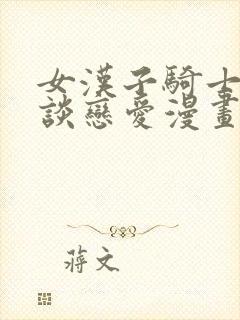 女漢子騎士
談戀愛漫畫
蔣文